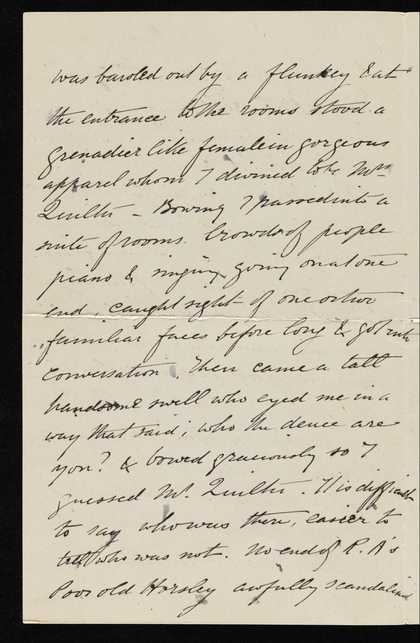 was bawled out by a flunkey & at
the entrance to the rooms stood a
grenadier like female in gorgeous
apparel whom I divined to be Mrs
Quilter – Bowing I passed into a
suite of rooms. Crowds of people
piano & singing going on at one
end, caught sight of one or two
familiar faces before long & got into
conversation. Then came a tall
handsome swell who eyed me in a
way that said; who the deuce are
you? & bowed graciously so I
guessed Mr. Quilter. It is difficult
to say who was there, easier to
tell who was not. No end of R.A's
Poor old Horsley awfully scandalised